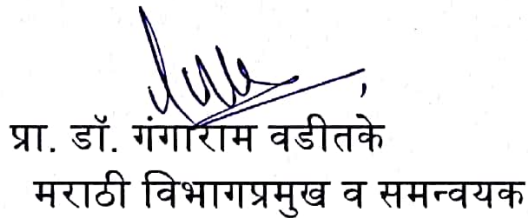 प्रा. डॉ. गंगाराम वडीतके
मराठी विभागप्रमुख व समन्वयक